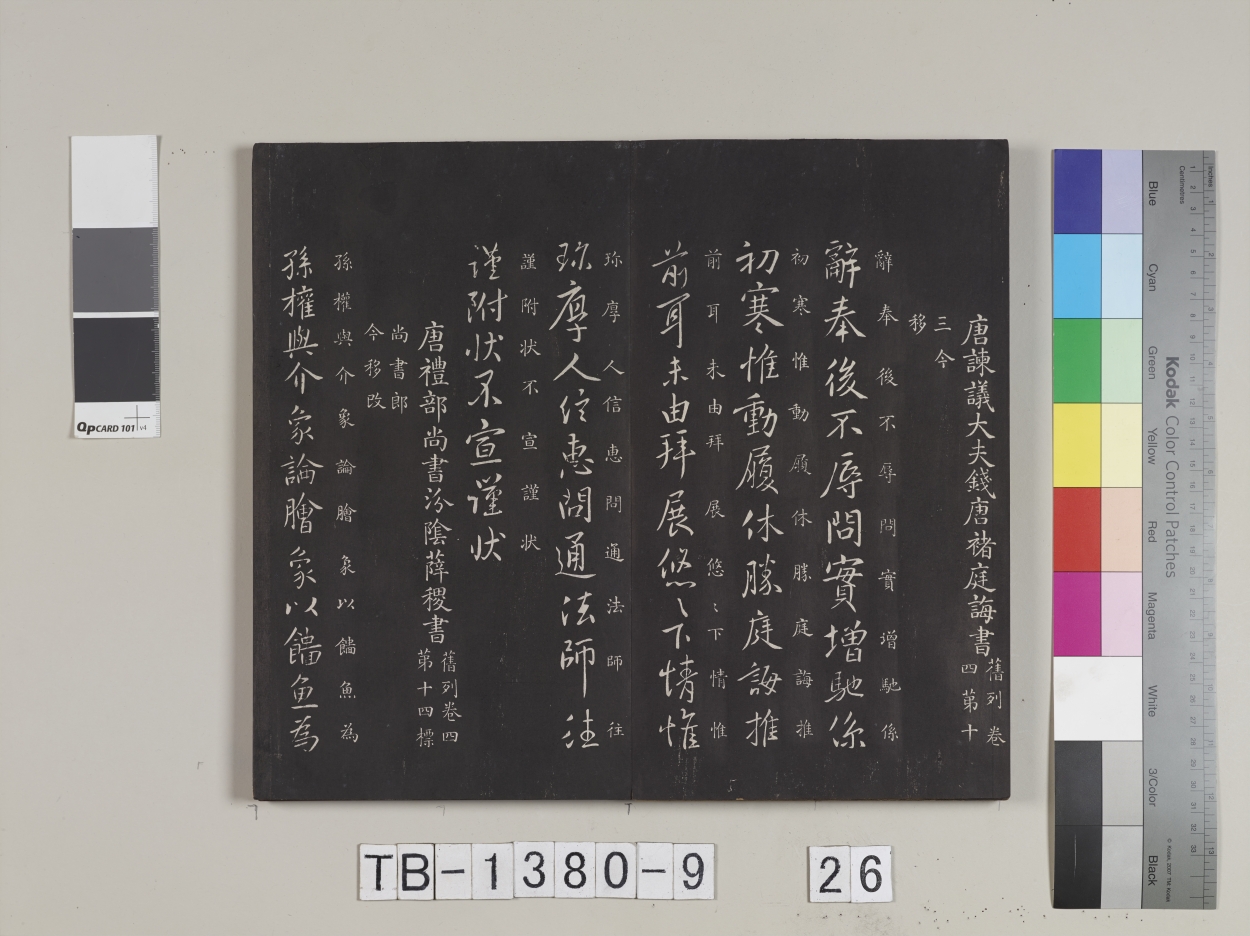 唐諫議大夫錢唐褚庭誨書
舊列卷
四第十
三今
移
辭奉後不辱問實增馳係
辭奉後不辱問實增馳係
初寒惟動履休勝庭誨推
初寒惟動履休勝庭誨推
前耳未由拜展悠〻下情惟
前耳未由拜展悠〻下情惟
珎摩人信惠問通法師往
珎摩人信惠問通法師往
謹附狀不宣謹狀
謹附狀不宣謹狀
唐禮部尚書汾陰薛稷書
舊列卷四
第十四標
尚書郎
今移改
孫權與介象論膾象以饍魚為
孫權與介象論膾象以饍魚為
QpCARD 101 v4
Kodak Color Control Patches
Blue
Cyan
Green
Yellow
Red
Magenta
White
3/Color
Black
Inches
Centimetres
© Kodak, 2007 TM: Kodak
TB-1380-9
26